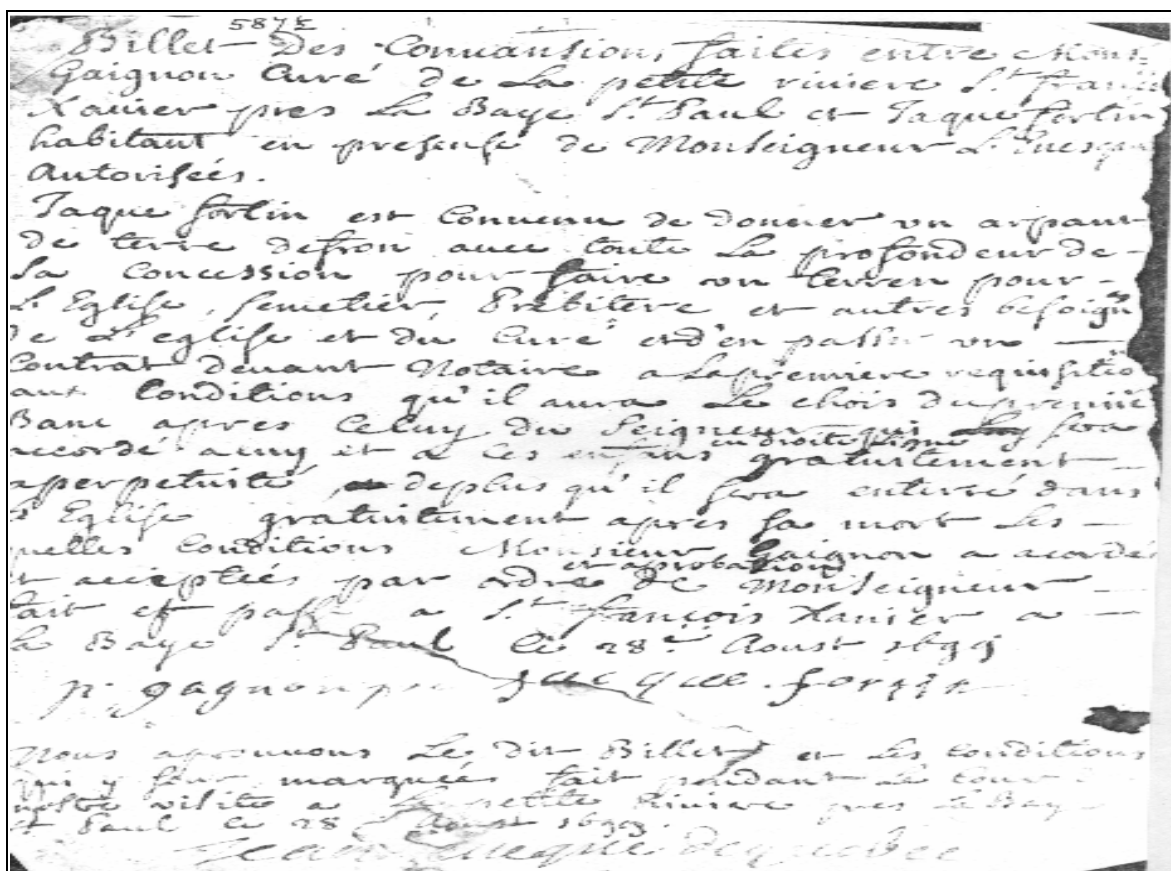 587½
Billet Des Conuansions failes entre Mons:
Gaignon Curé de La petite riuiere St. françois
Xauier pres La Baye St. Paul et Jaque fortin
habitant en presense de Monseigneur L'Euesque
Autorisées.
Jaque fortin est Conuenu de donner vn arpant
de terre defron auec toute La profondeur de-
La Concession pour faire vn terren pour-
L'Eglise, semetier, Prebitere et autres besoign
de L'eglise et du Curé et d'en passer vn —
Contrat deuant Notaire a La premiere requisitio
aux Conditions qu'il aura Le chois du premier
Banc apres Celuy du Seigneur qui sera
en droite Ligne
accordé a luy et a ses enfans gratuitement
a perpetuité, deplus qu'il sera enterré dans
L'Eglise gratuitement apres sa mort Les-
quelles Conditions Monsieur Gaignon a acordé
et aprobation
et acceptées par ordre de Monseigneur
fait et passé a St. françois Xauier a —
La Baye St. Paul le 28e Aoust 1699
p. gagnon jacque fortin
Nous aprouuons Le dit Billet et Les Conditions
qui y sont marquées fait pendant Le cour
nostre visite a La petite Riuiere pres La Baye
St Paul le 28 Aoust 1699.
Jean Eueque de quebec